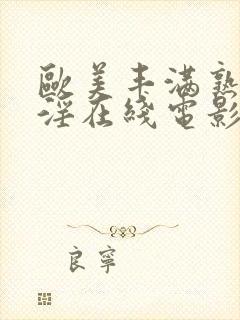 歐美丰滿熟
淫在綫電影
良寧